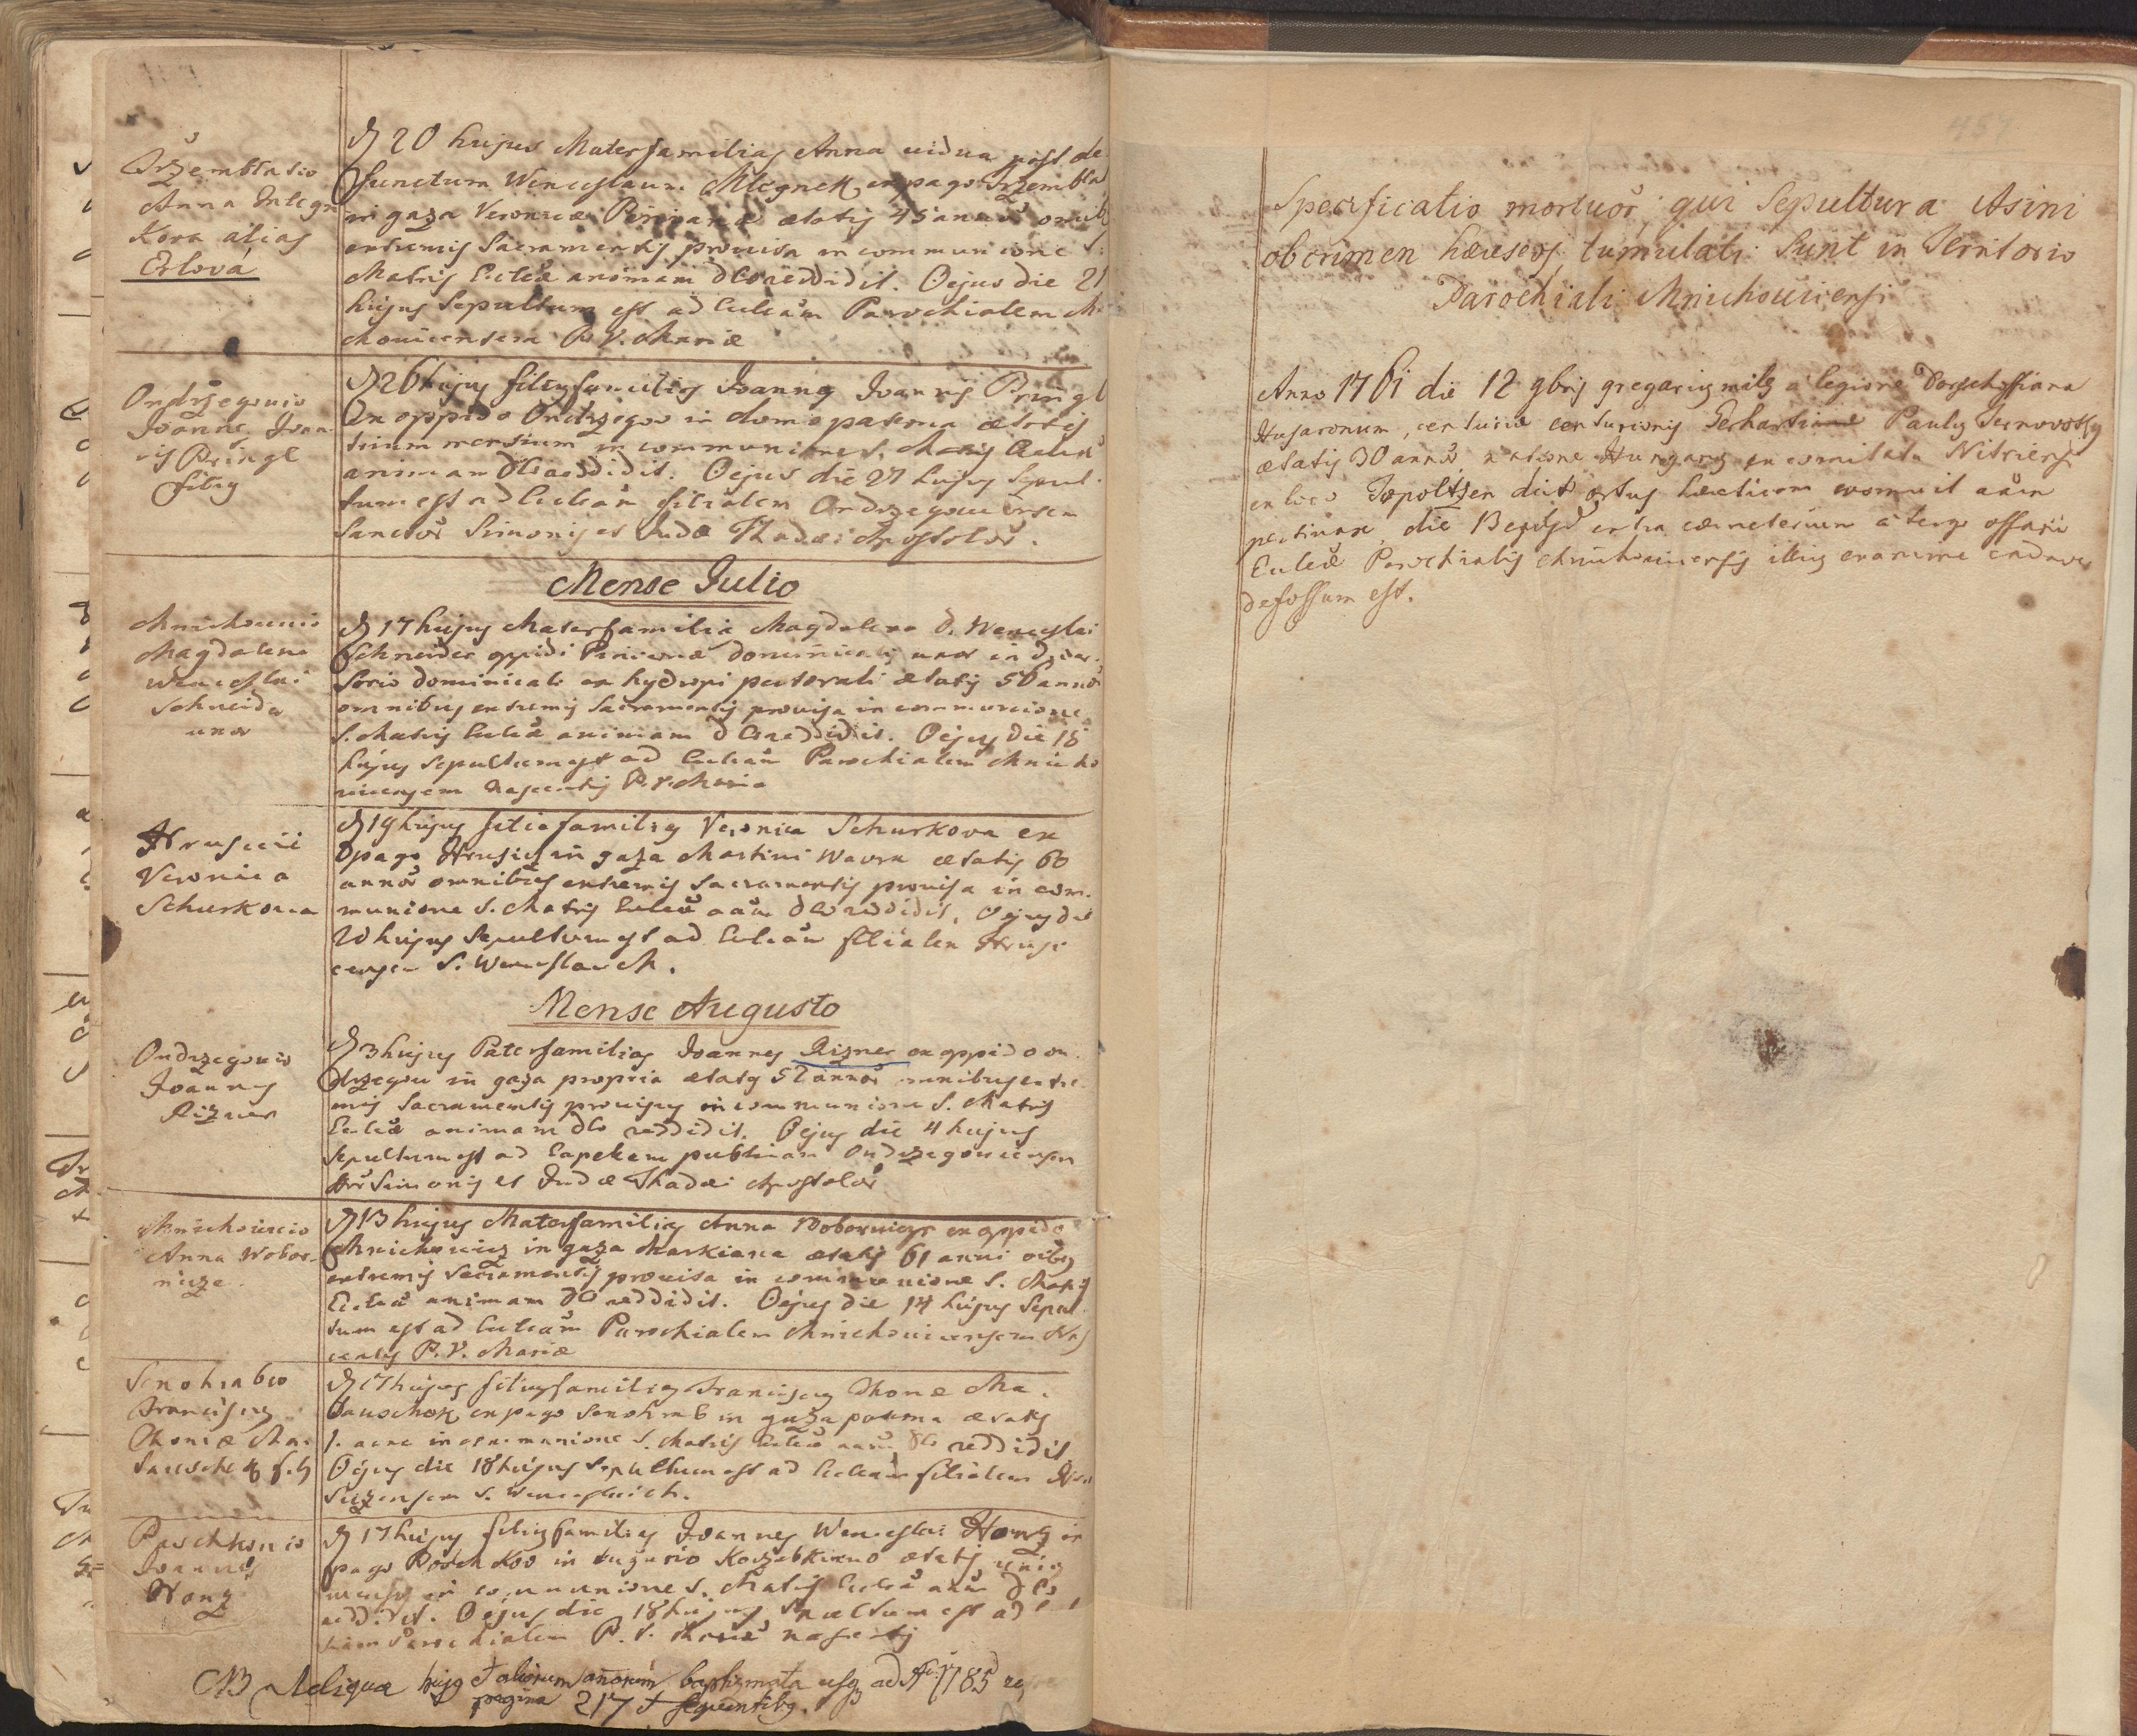 Trzemblatio
Anna
Kova alias
Erlová
D 20 hujus Materfamilias Anna vidua post de
functum Wenceslaum ex pago Trzembla
in gaza Veronicæ ætatis 45 annorũ omnib
extremis Sacramentis provisa in communione S.
Matris Eccliæ animam DEO reddidit. Cejus die 21
hujus Sepultum est ad Eccleãm Parochialem M
chovicensem B V. Mariæ
Ondrzegovio
Joannes Joan
is Pringl
filiy
D 26 hujus filiusfamilias Joannes Joannis Pringl
ex oppido Ondrzegov in domo paterna ætatis
trium mensium in communione S. Matris Eccliæ
animam DEo reddidit. Cejus die 27 hujus Sepul
tum est ad Eccleãm filialem Ondrzegoviensem
Sanctor Simonis et Judæ Thadæi Apostolor.
Mense Julio
Mnichovicio
Magdalena
Wenceslai
Schneider
uxor
D 17 hujus Materfamilia Magdalena D. Wenceslai
Schneider oppidi dominicalis uxor in diver
sorio dominicali ex hydropi pectorali ætatis 56 annor
omnibus extremis Sacramentis provisa in communione
S. Matris Eccliæ animam DEo reddidit. Cejus die 18
hujus sepultum est ad Eccleãm Parochialem Mnicho
vicensem Nascentis B. V. Maria
Hrusicii
Veronica
Schurkova
D 19 hujus filiafamilias Veronica Schurkova ex
pago Hrusicz in gaza Martini Wavra ætatis 60
annor omnibus extremis Sacramentis provisa in com
munione S. Matris Eccliæ aãm DEo reddidit. Cejus die
20 hujus Sepultum est ad Eccleãm filialem Hrusi
censem S. Wenceslai M.
Mense Augusto
Ondrzegovio
Joannes
Rizner
D 3 hujus Paterfamilias Joannes Rizner ex oppido On
drzegov in gaza propria ætatis 52 annor omnibus extre
mis Sacramentis provisus in communione S. Matris
Eccliæ animam DEo reddidit. Cejus die 4 hujus
sepultum est ad Capelam publicam Ondrzegovicensem
Simonis et Judæ Thadæi Apostolor
Mnichovicio
Anna Wobor
nicze
D 13 hujus Materfamilias Anna Wobornicze ex oppido
Mnichovicz in gaza Markiana ætatis 61 anni oibg
extremis Sacramentis provisa in communione S. Matris
Eccliæ animam DEo reddidit. Cejus die 14 hujus Sepul
tum est ad Eccleãm Parochialem Mnichovicensem Nas
centis B. V. Mariæ
Senohrabio
Franciscus
Thomæ Ma
tauschek f.ly
D 17 hujus filiusfamilias Franciscus Thomæ Ma
tauschek ex pago Senohrab in gaza paterna ætatis
1. anni in communione S. Matris Eccliæ aãm DEo reddidit
Cejus die 18 hujus Sepultum est ad Eccleãm filialem Hru
siczensem S. Wenceslai M.
Paschkovio
Joannes
Honz
D 17 hujus filiusfamilias Joannes Wenceslai Honz ex
pago in tugurio ætatis unius
mensis in communione S. Matris Eccliæ aãm DEo
reddidit. Cejus die 18 hujus Sepultum est ad
Parochialem B. V. Mariæ Nascentis
NB Reliqua hujg et aliorum anorum baptizmata usq ad Aũ 1785
pagina 217 et sequentibg.
457
Specificatio mortuor, qui Sepultura Asini
ob crimen hæreseos tumulati Sunt in Territorio
Parochiali Mnichoviciensi
Anno 1761 die 12 9bris gregarius miles a legione
Husaronum, centuriæ centurionis Paulus Ternovosky
ætatis 30 annor, natione Hungarus ex comitatu Nitriensi
ex loco Topoltzen dicto ortus hæreticam vomuit aãm
pertinax, die 13 extra cæmeterium a tergo ossarii
Eccliæ Parochialis Mnichovicensis illius exanime cadaver
defossum est.